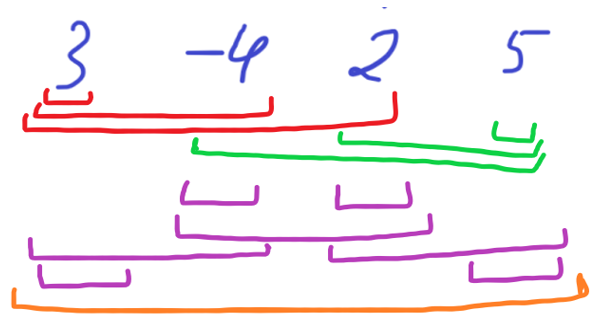 3 -4 2 5